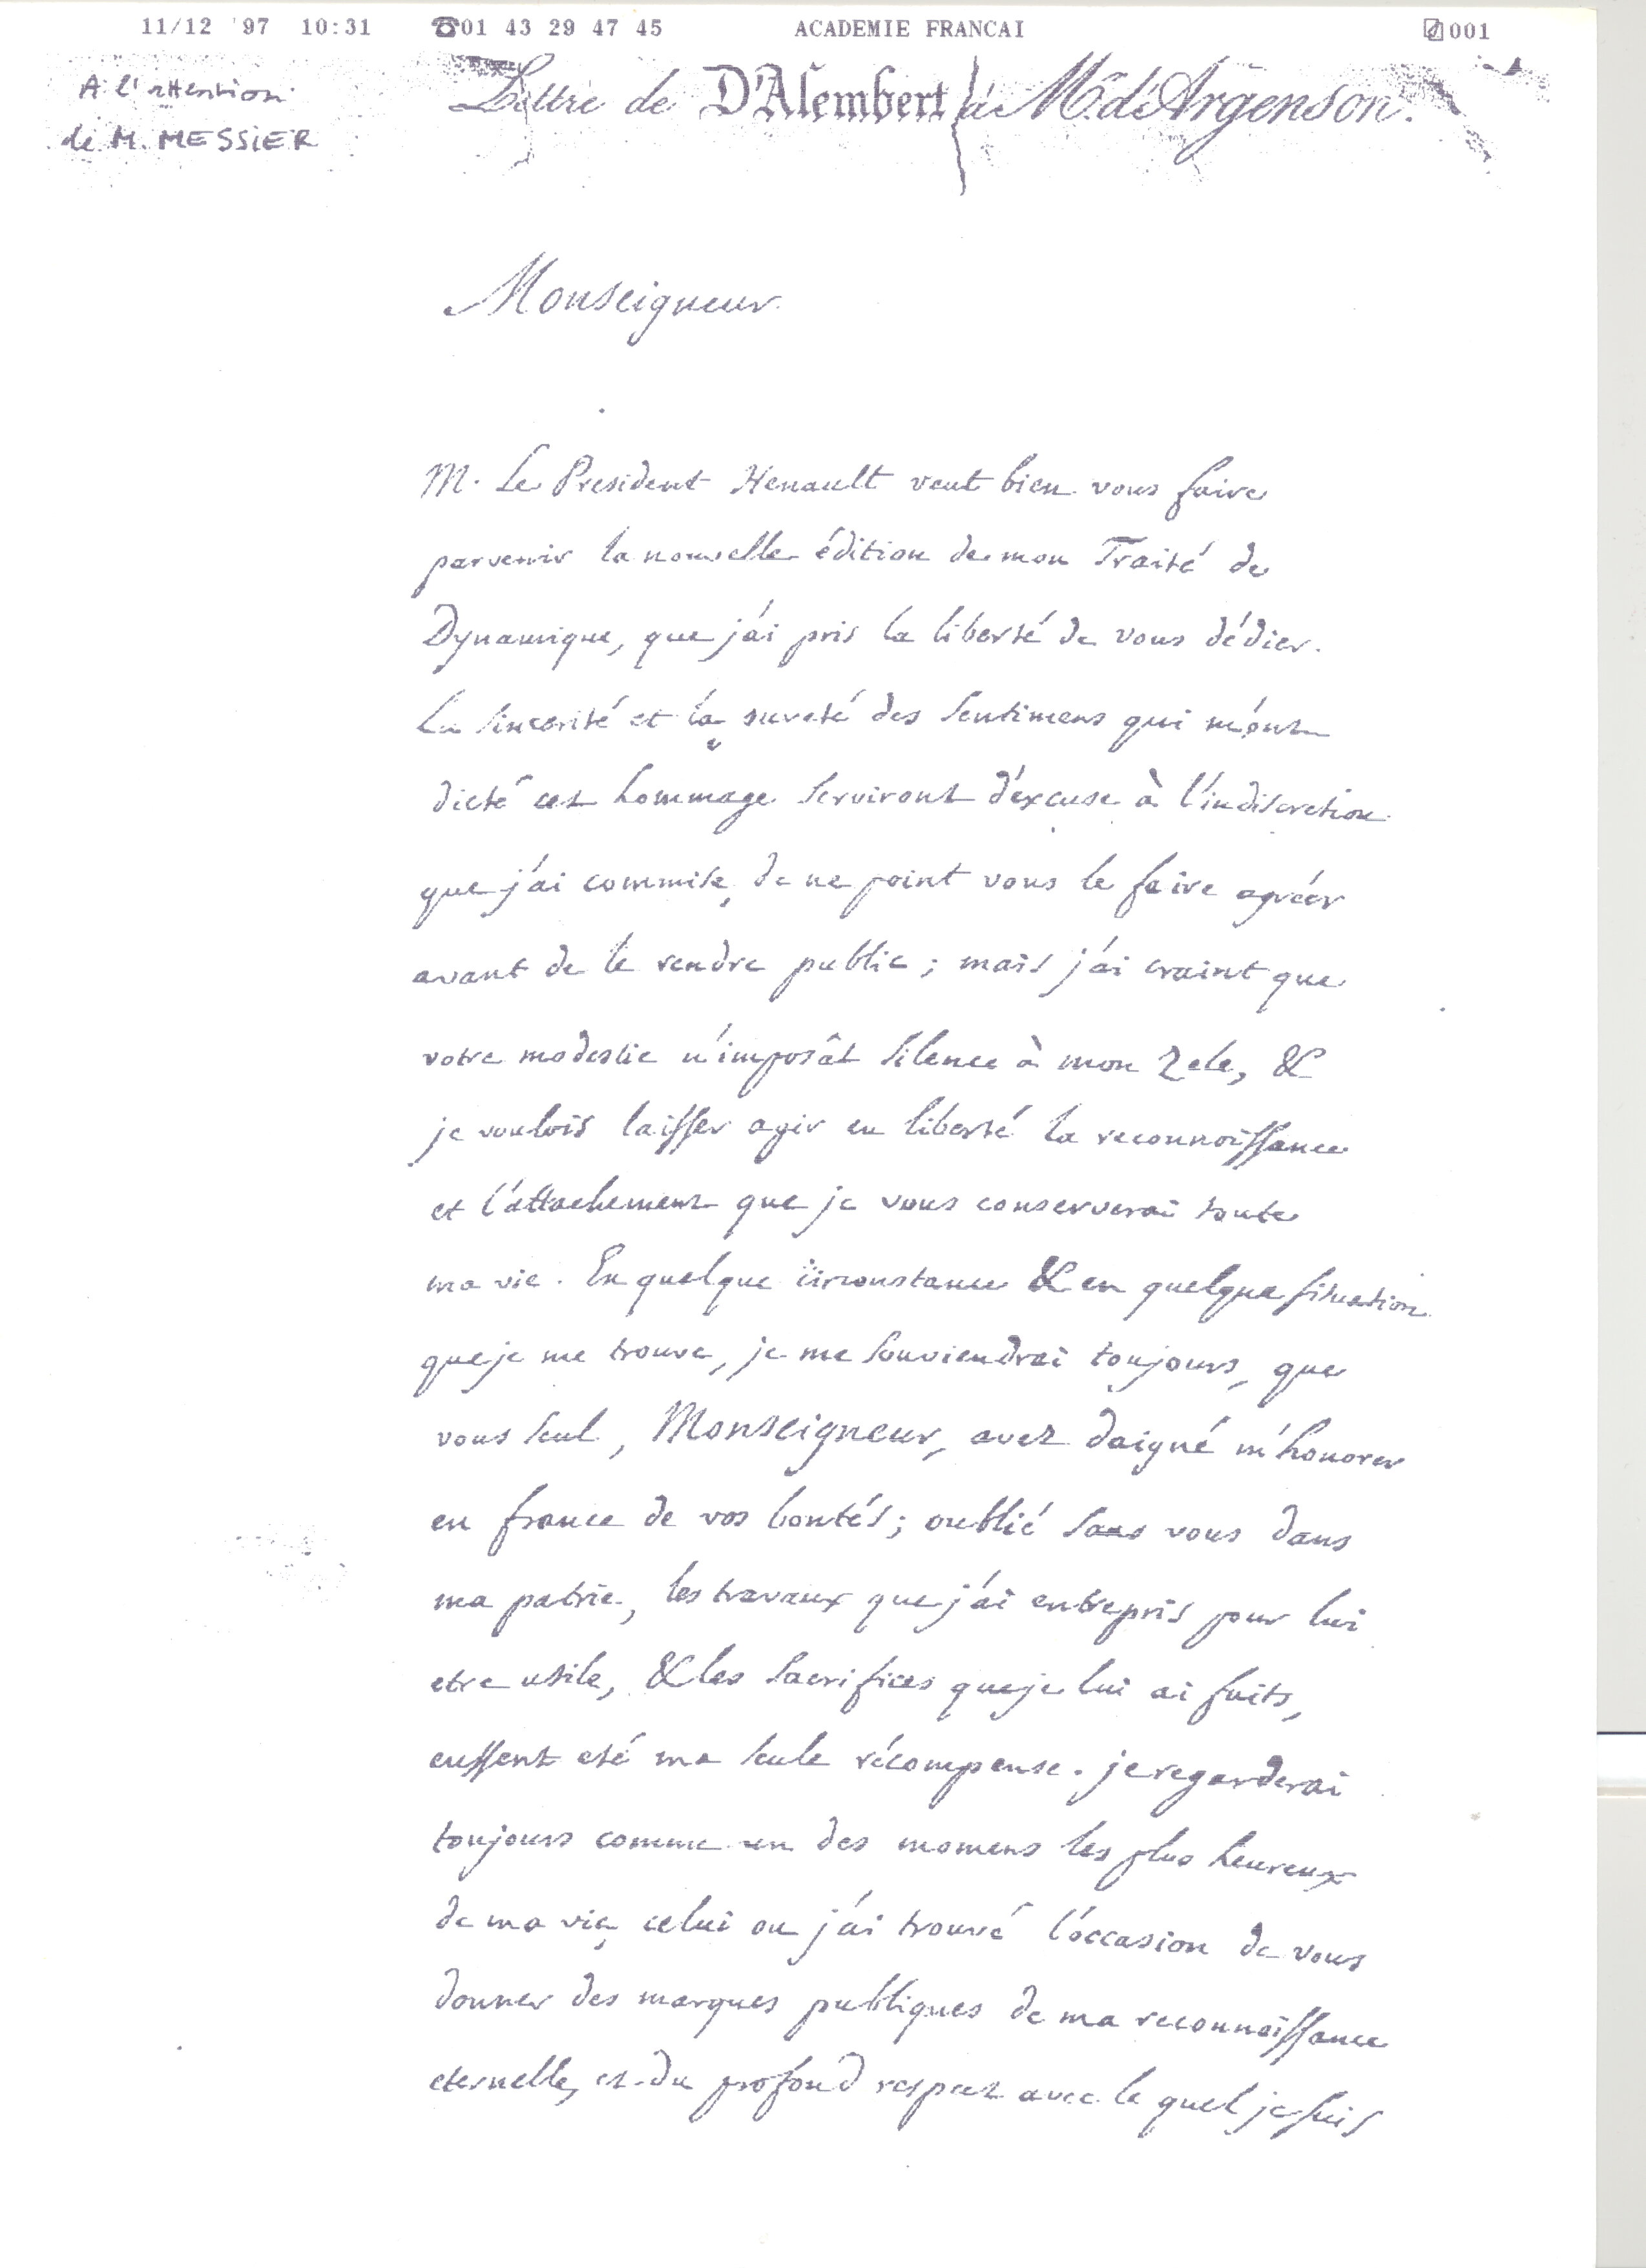 11/12 '97 10:31 ☎01 43 29 47 45 ACADEMIE FRANCAI 001
A l'attention
de M. MESSIER
Lettre de D'Alembert à Mr. d'Argenson.
Monseigneur
M. Le President Henault veut bien vous faire
parvenir la nouvelle édition de mon Traité de
Dynamique, que j'ai pris la liberté de vous dédier.
La sincerité et la sureté des sentimens qui m'ont
dicté cet hommage serviront d'excuse à l'indiscretion
que j'ai commise, de ne point vous le faire agréer
avant de le rendre public ; mais j'ai craint que
votre modestie n'imposât silence à mon zele, &
je voulois laisser agir en liberté la reconnoissance
et l'attachement que je vous conserverai toute
ma vie. En quelque circonstance & en quelque situation
que je me trouve, je me souviendrai toujours, que
vous seul, Monseigneur, avez daigné m'honorer
en france de vos bontés ; oublié sans vous dans
ma patrie, les travaux que j'ai entrepris pour lui
etre utile, & les sacrifices que je lui ai faits,
eussent eté ma seule récompense. je regarderai
toujours comme un des momens les plus heureux
de ma vie, celui ou j'ai trouvé l'occasion de vous
donner des marques publiques de ma reconnoissance
eternelle, et du profond respect avec le quel je suis